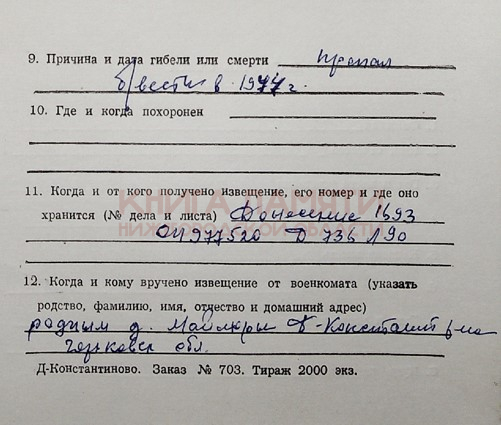 9. Причина и дата гибели или смерти пропал
б/вести в 1944 г.
10. Где и когда похоронен
11. Когда и от кого получено извещение, его номер и где оно
КНИГА ПАМЯТИ
хранится (№ дела и листа) Донесение 1693
НИЖЕГОРОДСКОЙ ОБЛАСТИ
ОП 977520 Д 736 Л 90
12. Когда и кому вручено извещение от военкомата (указать
родство, фамилию, имя, отчество и домашний адрес)
родным д. Д-Константин р-на
Горьковск обл.
Д-Константиново. Заказ № 703. Тираж 2000 экз.